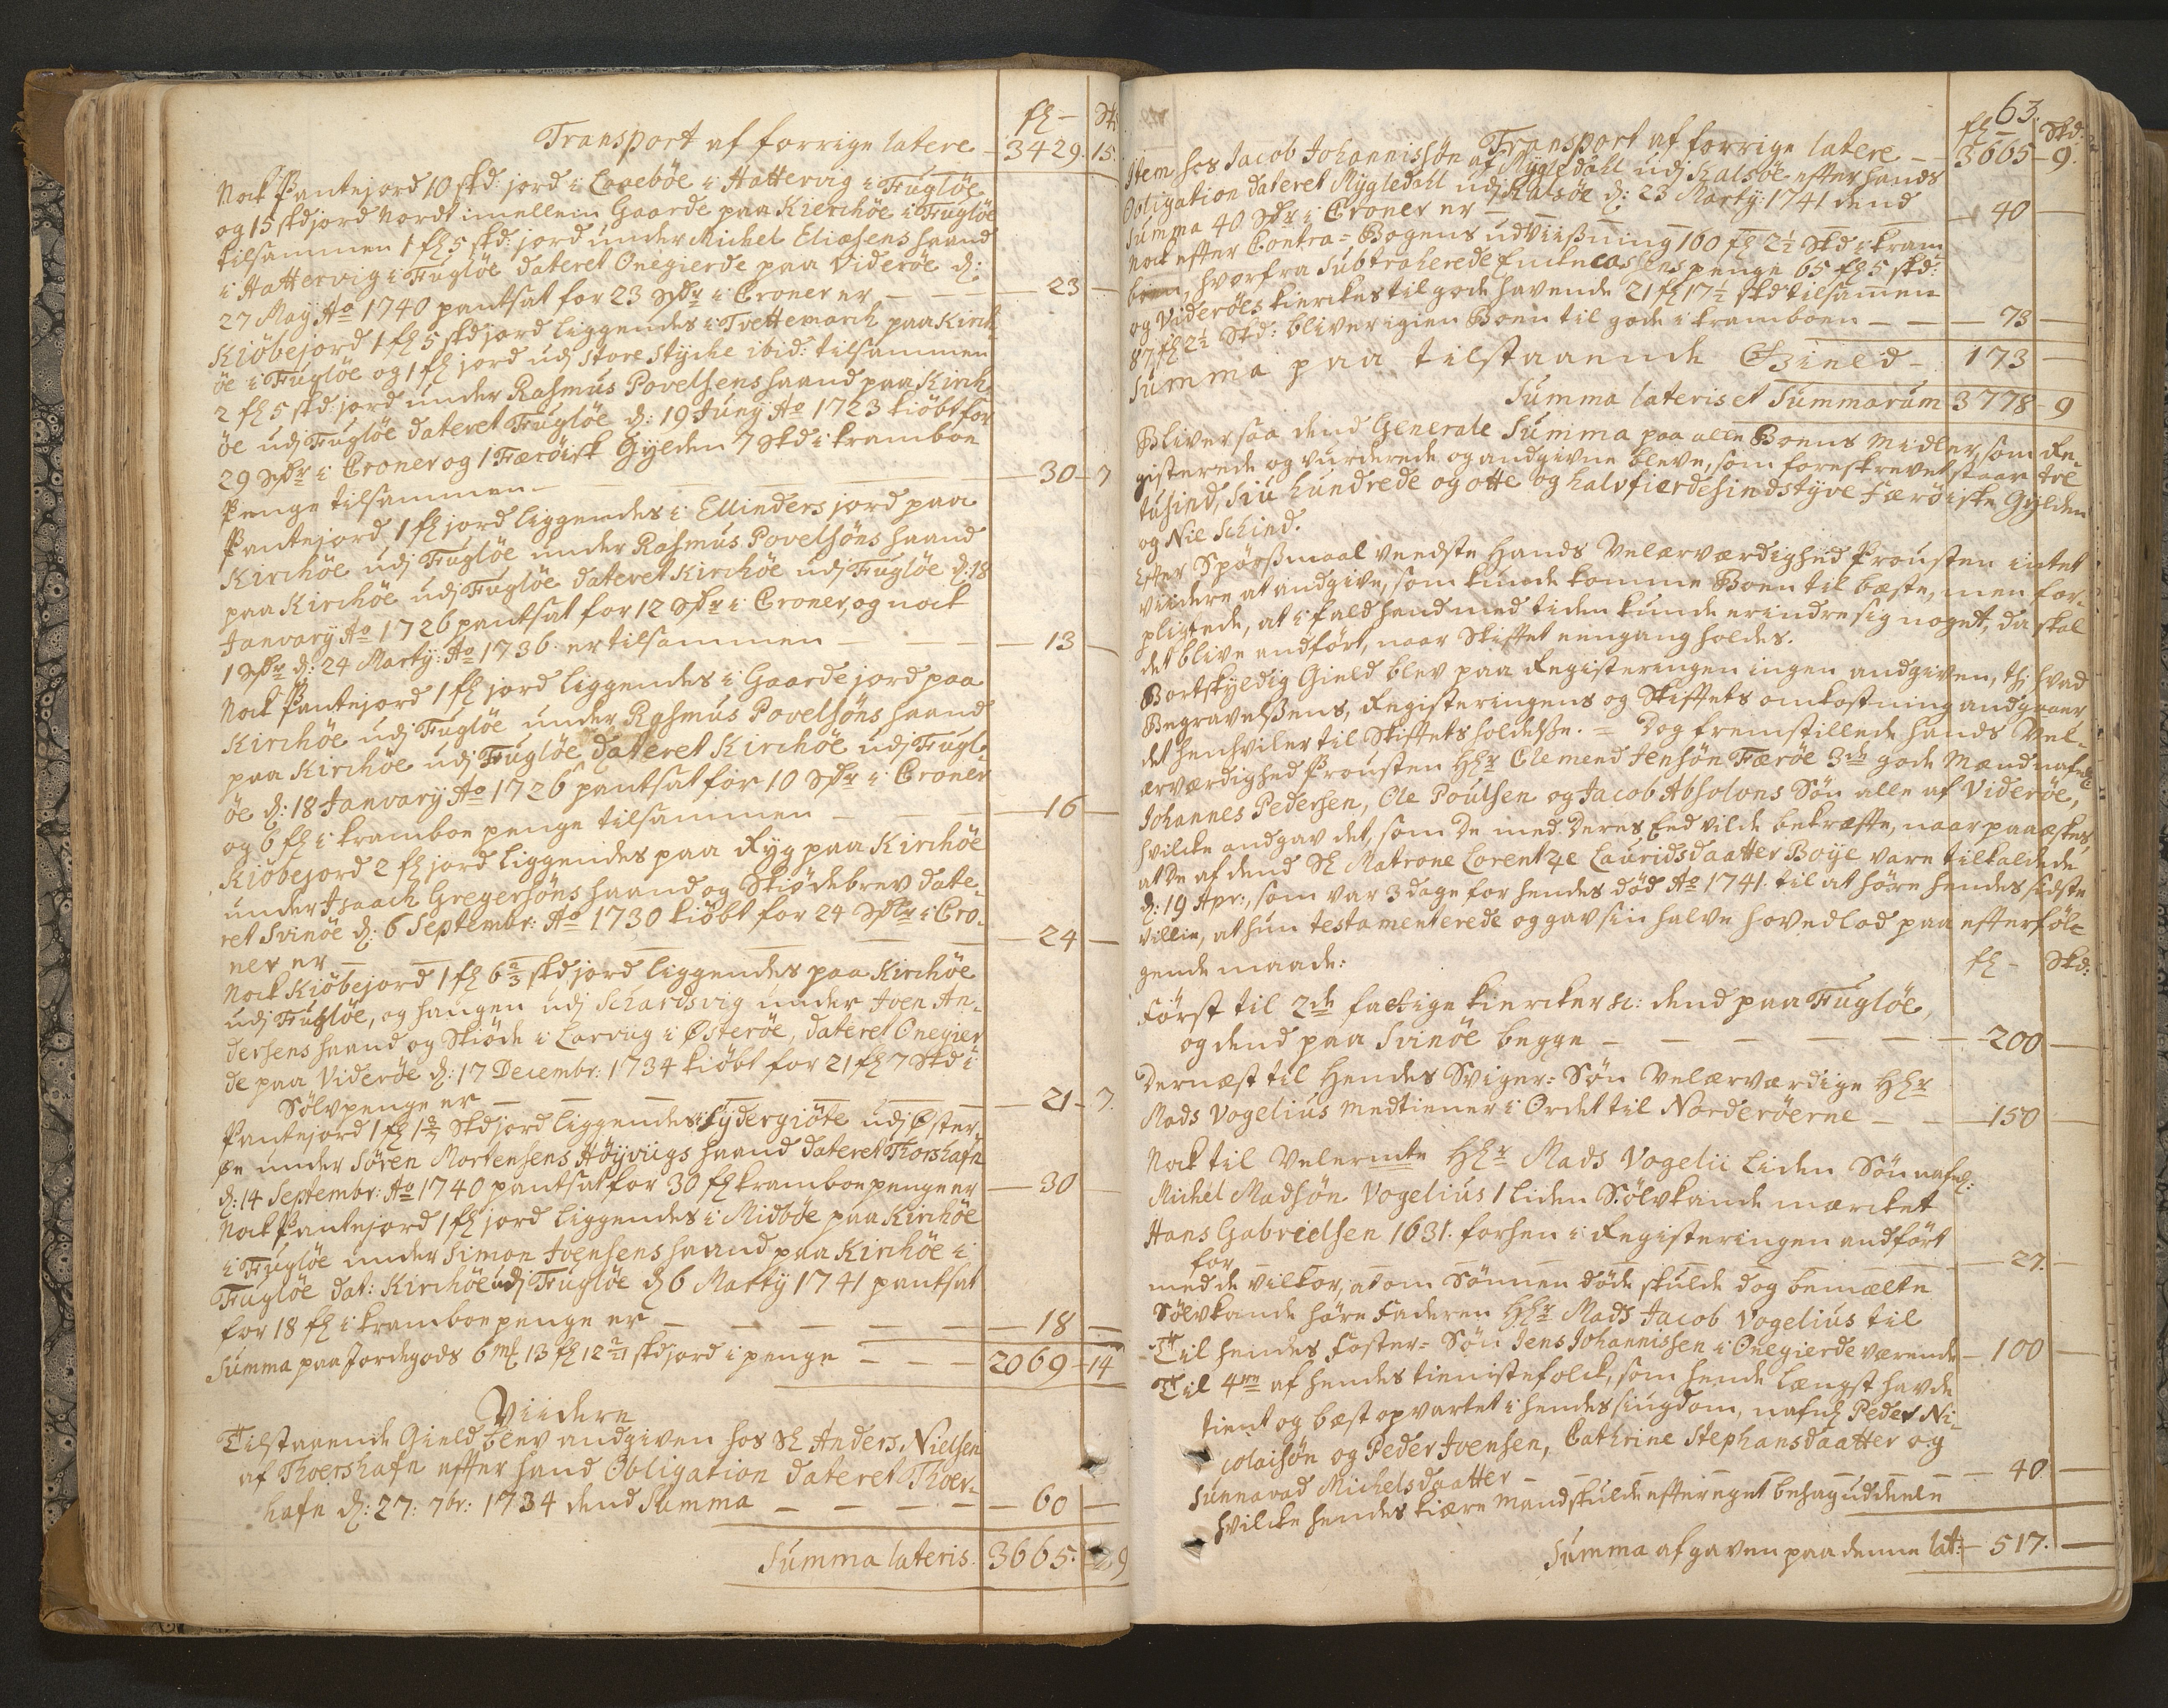 fl – Sk:
Transport af forrige latere – 3429. 15.
Nock Pantejord 10 skd: jord i Loeebøe i Hattervig i Fugløe
og 15 skd jord Nordt imellem Gaarde paa Kierchøe i Fugløe
tilsammen 1 fl 5 skd: jord under Michel Eliæsens haand
i Hattervig i Fugløe dateret Onegierde paa Viderøe d:
27 May Ao 1740 pantsat for 23 Spdr i Croner er – – – 23 –
Kiøbejord 1 fl 5 skd jord liggendes i Tvettemarck paa Kirch-
øe i Fugløe og 1 fl jord udj store stycke ibid: tilsammen
2 fl 5 skd: jord under Rasmus Povelsens haand paa Kirch-
øe udj Fugløe dateret Fugløe d: 19 Juny Ao 1723 kiøbt for
29 Spdr i Croner og 1 Færøisk Gylden 7 Skd i kramboe
Penge tilsammen – – – – 30 – 7
Pantejord 1 fl jord liggendes i Ellinders jord paa
Kirchøe udj Fugløe under Rasmus Povelsøns haand
paa Kirchøe udj Fugløe dateret Kirchøe udj Fugløe d: 18
Janvary Ao 1726 pantsat for 12 Spdr i Croner, og nock
1 Spdr d: 24 Marty: Ao 1736. er tilsammen – – – 13 –
Nock Pantejord 1 fl jord liggendes i Gaarde jord paa
Kirchøe udj Fugløe under Rasmus Povelsøns haand
paa Kirchøe udj Fugløe dateret Kirchøe udj Fugl-
øe d: 18 Janvary Ao 1726 pantsat for 10 Spdr i Croner
og 6 fl i kramboe penge tilsammen – – – 16 –
Kiøbejord 2 fl jord liggendes paa Ryg paa Kirchøe
under Isaach Gregersøns haand og Skiødebrev date-
ret Svinøe d: 6 Septembr: Ao 1730 kiøbt for 24 Spdr i Cro-
ner er – – – – 24 –
Nock Kiøbejord 1 fl 6 2/3 skd jord liggendes paa Kirchøe
udj Fugløe, og haugen udj Schardsvig under Joen An-
dersens haand og Skiøde i Lorvug i Østerøe, dateret Onegier
de paa Viderøe d: 17 Decembr: 1734 kiøbt for 21 fl 7 Skd i
Sølvpenge er – – – – 21 – 7.
Pantejord 1 fl 1 2/7 Skd jord liggendes i Sydergiøte udj Øster-
øe under Søren Mortensens Høyvugs haand dateret Thorshafn
d: 14 Septembr: Ao 1740 pantsat for 30 fl kramboe penge er – 30 –
Nock Pantejord 1 fl jord liggendes i Midbøe paa Kirchøe
i Fugløe under Simon Joensens haand paa Kirchøe i
Fugløe dat: Kirchøe udj Fugløe d 6 Marty 1741 pantsat
for 18 fl i kramboe penge er – – – – 18 –
Summa paa Jordegods 6 m 13 fl 12 2/21 skd jord i penge – – – 2069 – 14
Viidere
Tilstaaende Gield blev andgiven hos Sl Anders Nielsen
af Thoershafn efter hand Obligation dateret Thoers-
hafn d: 27: 7br: 1734 dend Summa – – – – 60 –
Summa lateris. 3665. – 9
63.
fl – Skd:
Transport af forrige latere – 3665 – 9.
Item hos Jacob Johannissøn af Mygledahl udj Kalsøe efter hands
Obligation dateret Mygledahl udj Kalsøe d: 23 Marty: 1741 dend
Summa 40 Spdr i Croner er – – – – 40 –
Nock efter Contra-Bogens udviisning 160 fl 2 1/2 Skd i kram
boen, hvorfra Subtraherede Enckecassens penge 65 fl 5 skd:
og Viderøes kierckes til gode havende 21 fl 17 1/2 skd tilsamen
87 fl 2 1/2 Skd: bliver igien Boen til gode i kramboen – – – 73 –
Summa paa tilstaaende Gield – 173 –
Summa lateris et Summarum 3778 – 9
Bliver saa dend Generale Summa paa alle Boens Midler, som Re-
gisterede og vurderede og andgivne bleve, som foreskrevet staar tre
tusind, Siu hundrede og otte og halvfierdesindstyve færøiske Gylden
og Nie Schind.
Efter Spørsmaal veedste Hands Velærværdighed Prousten intet
viidere at andgive, som kunde komme Boen til bæste, men for-
pligtede, at i fald hand med tiden kunde erindre sig noget, da skal
det blive andført, naar Skiftet eengang holdes.
Bortskyldig Gield blev paa Registeringen ingen andgiven, thj hvad
Begravelsens, Registeringens og Skiftets omkostning andgaaer,
det henhviler til Skiftets holdelse. – Dog fremstillede hands Vel-
ærværdighed Prousten Hr Clemend Jensøn Færøe 3de gode Mænd nafnl
Johannes Pedersen, Ole Poulsen og Jacob Absolons Søn alle af Viderøe,
hvilcke andgav det, som De med Deres Eed vilde bekræfte, naar paaæskes,
at De af dend Sl Matrone Lorentze Lauridsdaatter Boye vare tilkaldede
d: 19 Apr:, som var 3 dage for hendes død Ao 1741. til at høre hendes sidste
villie, at hun testamenterede og gav sin halve hovedlod paa efterføl-
gende maade: fl – Skd:
Først til 2de fattige kiercker sc: dend paa Fugløe,
og dend paa Svinøe begge – – – – – 200 –
Dernæst til Hendes Sviger-Søn Velærværdige Hr
Mads Vogelius medtiener i Ordet til Norderøerne – – 150 –
Nock til Velermte Hr Mads Vogelii liden Søn nafnl:
Michel Madsøn Vogelius 1 liden Sølvkande mærcket
Hans Gabrielsen 1631. forhen i Registeringen andført
for – – – – – 27. –
med de vilkor, at om Sønnen døde skulde dog bemælte
Sølvkande høre Faderen Hr Mads Jacob Vogelius til
Til hendes Foster-Søn Jens Johannissen i Onegierde værende – 100 –
Til 4re af hendes tienistefolck, som hende længst havde
tient og best opvartet i hendes siugdom, nafnl Peder Ni-
colaisøn og Peder Joensen, Cathrine Stephansdaatter og
Sunnevad Michelsdaatter – – – – 40 –
hvilcke hendes kiære Mand skulde efter eget behag uddeele
Summa af gaven paa denne lat: – 517. –